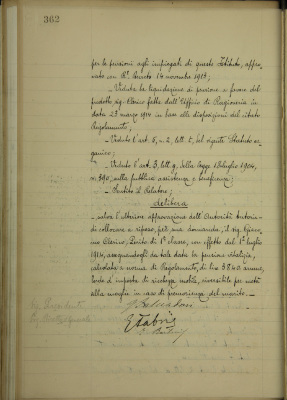 362
per le pensioni agli impiegati di queste Istituto, appro-
vato con R.° Decreto 14 novembre 1913;
- Veduta la liquidazione di pensione a favore del
predetto sig. Clarico fatta dall'Ufficio di Ragioneria in
data 23 marzo 1914 in base alle disposizioni del citato
Regolamento;
- Veduto l'art. 5, n. 2, lett. , del vigente Statuto or-
ganico;
- Veduto l'art. 3, lett. g, della legge 18 luglio 1904,
n. 390, sulla pubblica assistenza e beneficenza;
- Sentito il Relatore;
delibera
- salva l'ulteriore approvazione dell'Autorità tutoria -
di collocare a riposo, dietro sua domanda, il sig.
Clarico, di 1ª classe, con effetto dal 1° luglio
1914, assegnandogli da tale data la pensione vitalizia,
calcolata a norma di Regolamento, di lire annue,
lorde d'imposta di ricchezza mobile, riversibile per metà
alla moglie in caso di premorienza del marito. -
E. Fabris